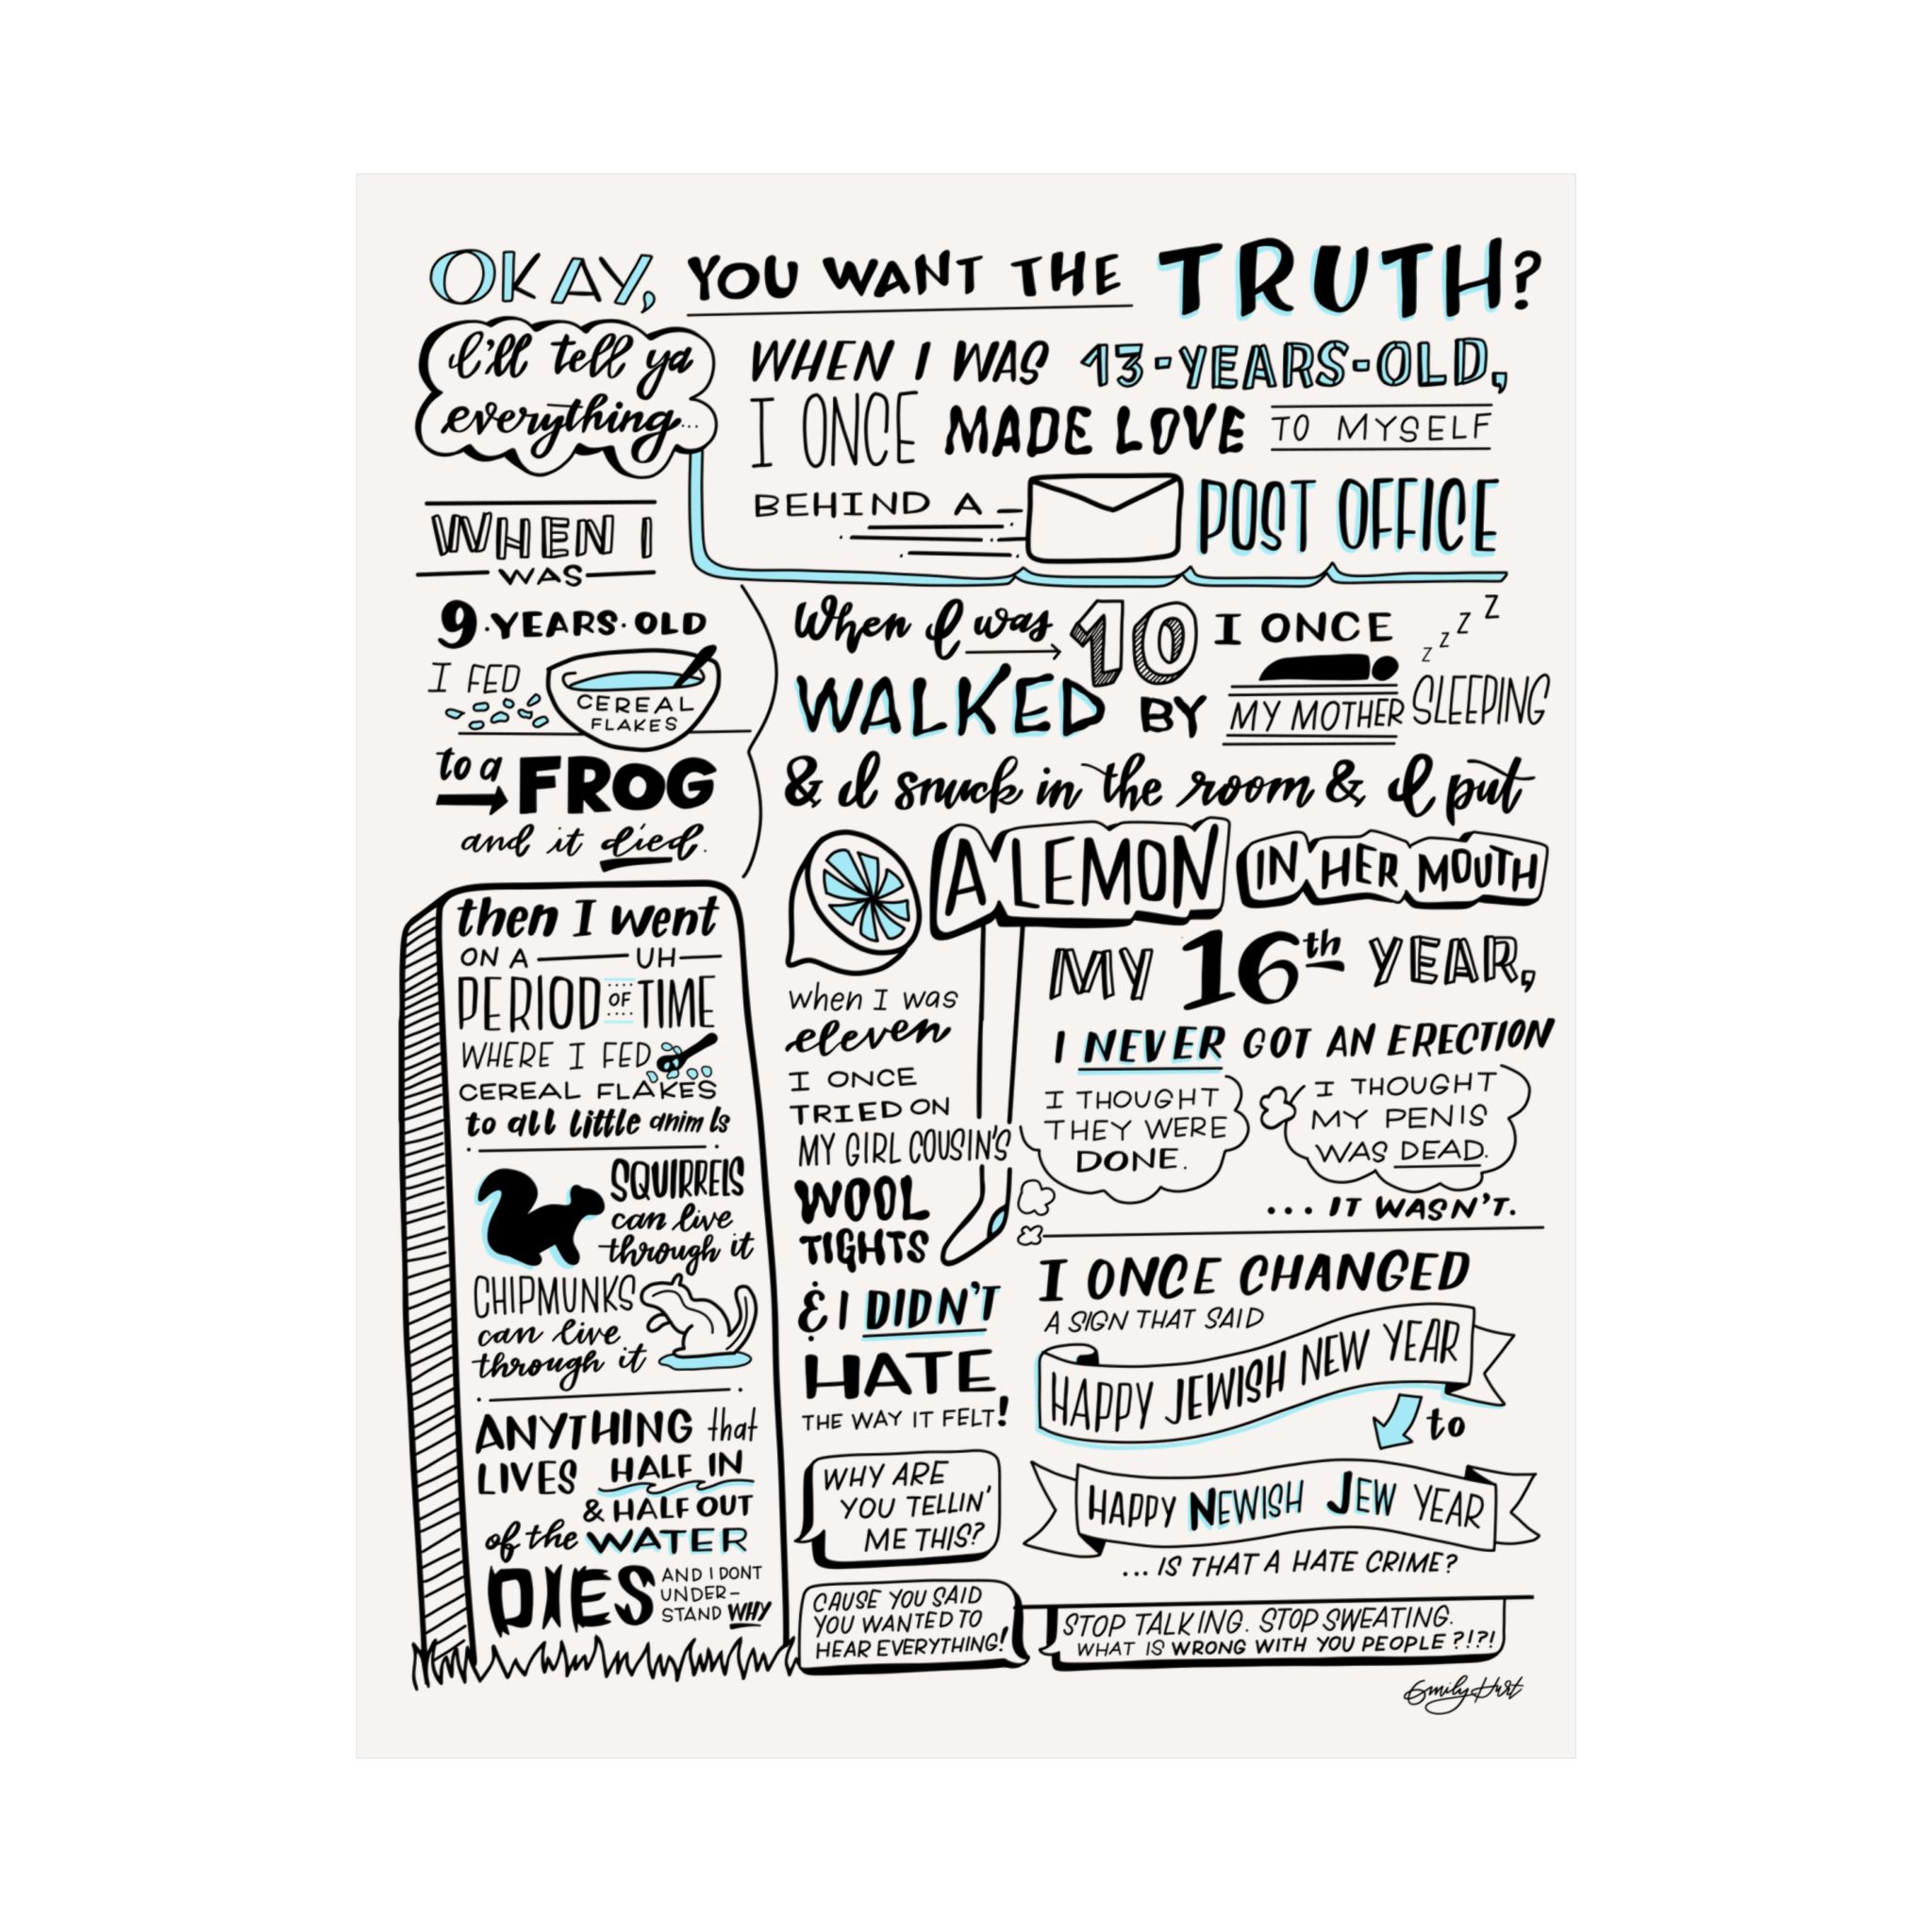 OKAY, YOU WANT THE TRUTH?
I'll tell ya
everything...
WHEN I WAS 13-YEARS-OLD,
I ONCE MADE LOVE TO MYSELF
BEHIND A POST OFFICE
WHEN I
WAS
9·YEARS·OLD
I FED
CEREAL
FLAKES
to a FROG
and it died.
When I was 10 I ONCE
z z z z
WALKED BY MY MOTHER SLEEPING
& I snuck in the room & I put
A LEMON IN HER MOUTH
then I went
ON A — UH —
PERIOD OF TIME
WHERE I FED
CEREAL FLAKES
to all little anim ls
SQUIRRELS
can live
through it
CHIPMUNKS
can live
through it
ANYTHING that
LIVES HALF IN
& HALF OUT
of the WATER
DIES AND I DONT
UNDER-
STAND WHY
when I was
eleven
I ONCE
TRIED ON
MY GIRL COUSIN'S
WOOL
TIGHTS
& I DIDN'T
HATE
THE WAY IT FELT!
MY 16th YEAR,
I NEVER GOT AN ERECTION
I THOUGHT
THEY WERE
DONE.
I THOUGHT
MY PENIS
WAS DEAD.
... IT WASN'T.
I ONCE CHANGED
A SIGN THAT SAID
HAPPY JEWISH NEW YEAR
to
HAPPY NEWISH JEW YEAR
... IS THAT A HATE CRIME?
WHY ARE
YOU TELLIN'
ME THIS?
CAUSE YOU SAID
YOU WANTED TO
HEAR EVERYTHING!
STOP TALKING. STOP SWEATING.
WHAT IS WRONG WITH YOU PEOPLE?!?!
Emily Hurt